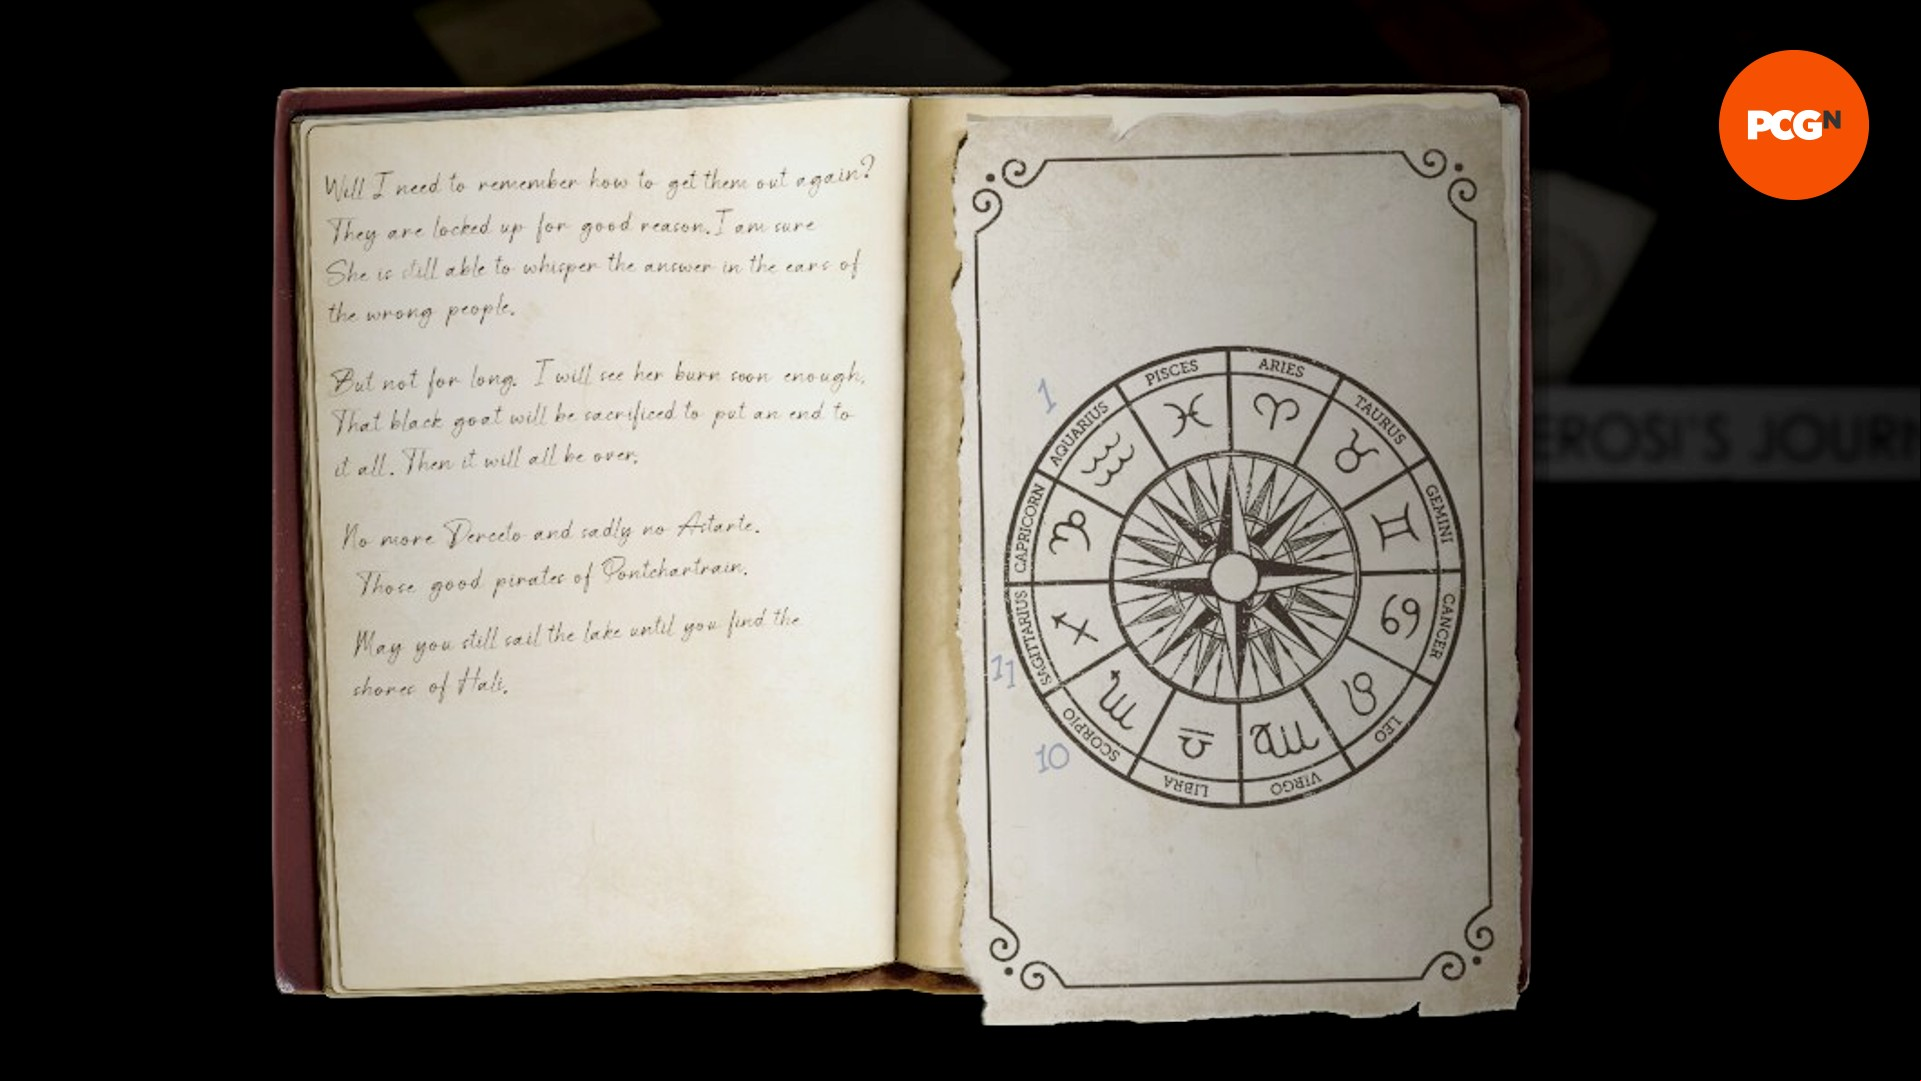 Will I need to remember how to get them out again?
They are locked up for good reason. I am sure
She is still able to whisper the answer in the ears of
the wrong people.
But not for long. I will see her burn soon enough.
That black goat will be sacrificed to put an end to
it all. Then it will all be over.
No more Derceto and sadly no Astarte.
Those good pirates of Pontchartrain.
May you still sail the lake until you find the
shores of Hali.
PISCES
ARIES
TAURUS
GEMINI
CANCER
LEO
VIRGO
LIBRA
SCORPIO
SAGITTARIUS
CAPRICORN
AQUARIUS
1
11
10
PCGN
EROSI'S JOURN